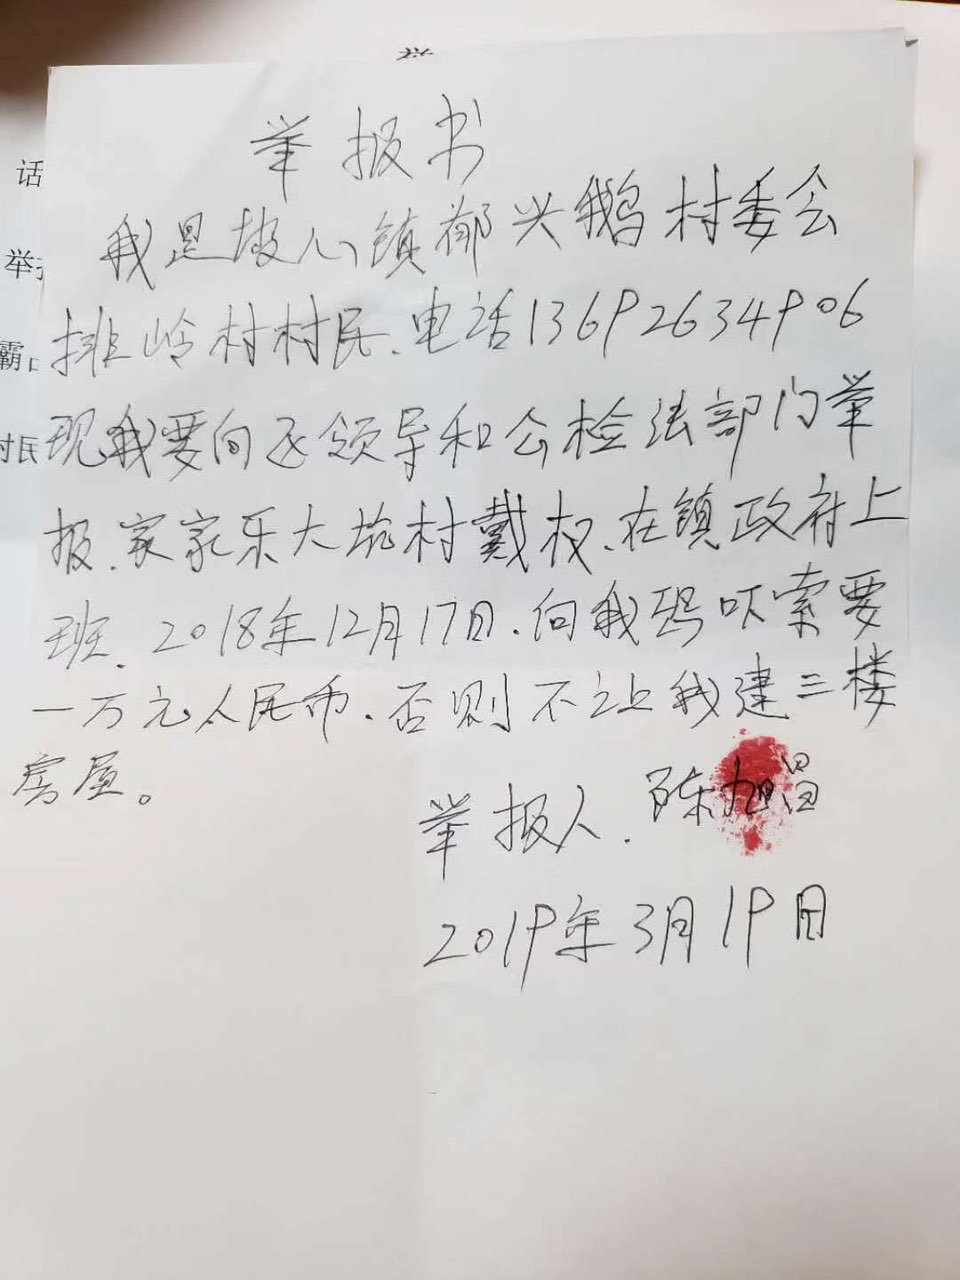 举
话
举
霸
村民
举报书
我是坡心镇郁兴鹅村委会
排岭村村民、电话13692634906
现我要向区领导和公检法部门举
报、家家乐大坑村戴权、在镇政府上
班、2018年12月17日、向我恐吓索要
一万元人民币、否则不让我建三楼
房屋。
举报人、陈旭昌
2019年3月19日